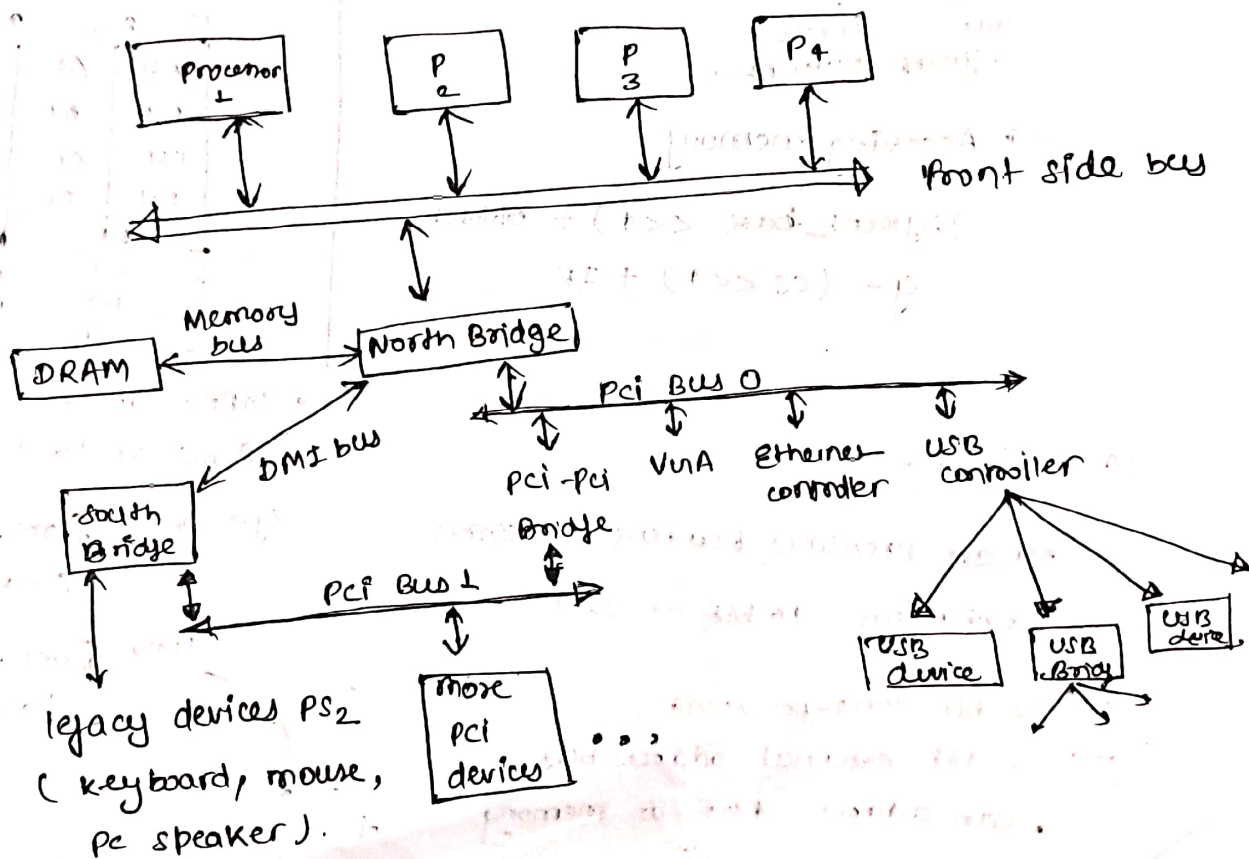 Processor
1
P
2
P
3
P4
Front side bus
Memory
bus
North Bridge
DRAM
PCI Bus 0
DMI bus
PCI-PCI
Bridge
VGA
Ethernet
controller
USB
controller
South
Bridge
PCI Bus 1
USB
device
USB
Bridge
USB
device
legacy devices PS2
(keyboard, mouse,
PC speaker).
more
PCI
devices
...